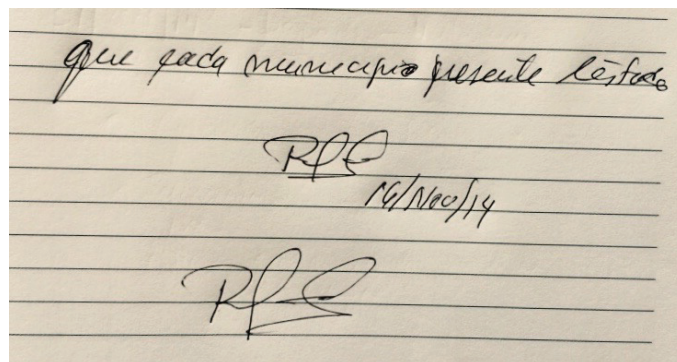 que cada municipio presente listado
16/Nov/14